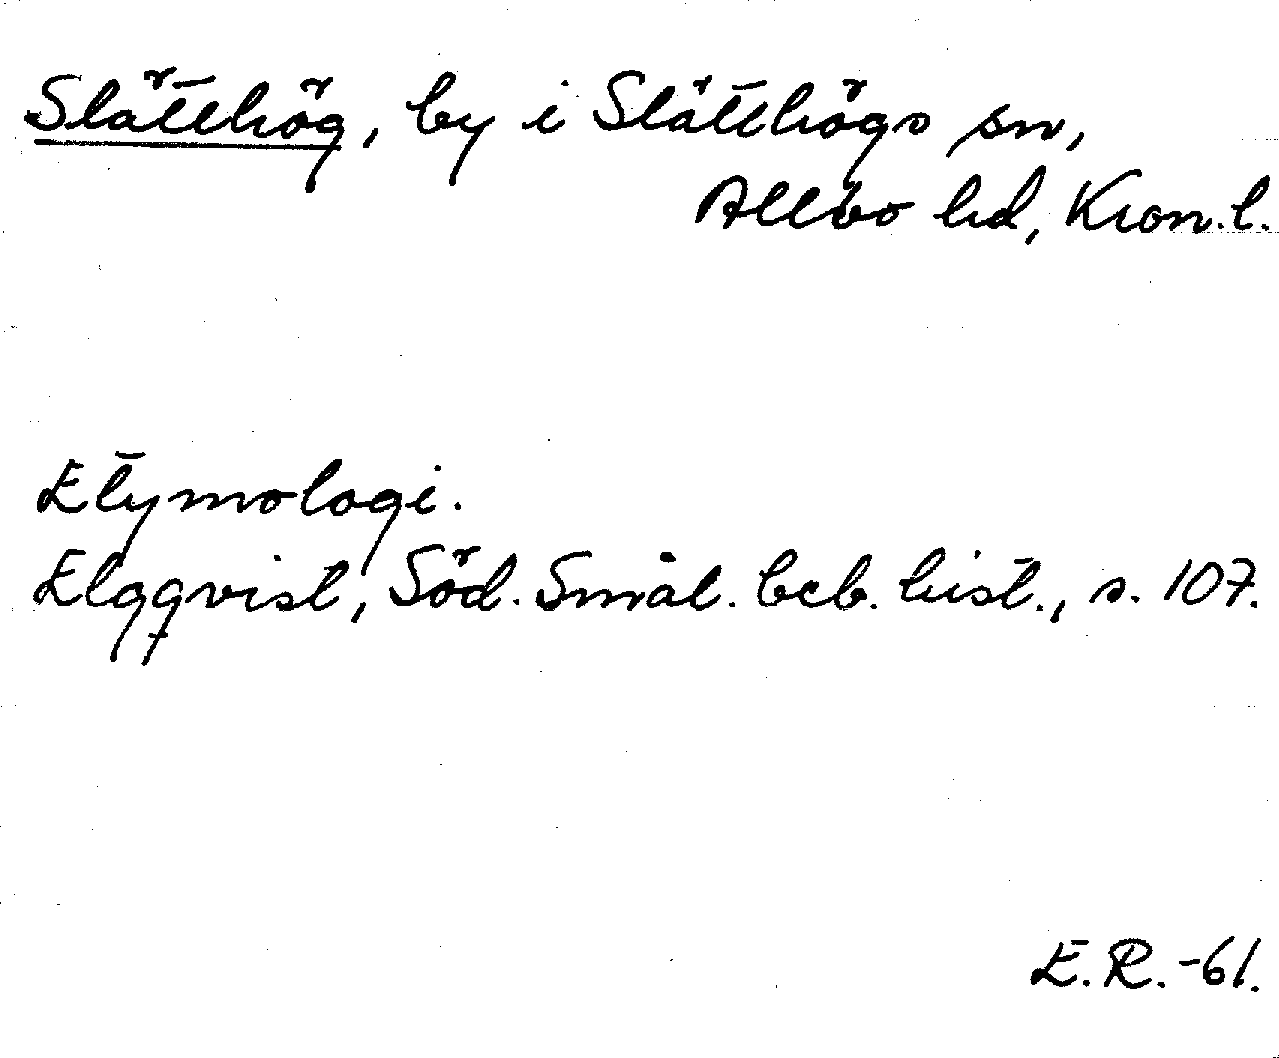 Slätthög, by i Slätthögs sn,
Allbo hd, Kron. l.
Etymologi.
Elgqvist, Söd. Smål. beb. hist., s. 107.
E. R. -61.